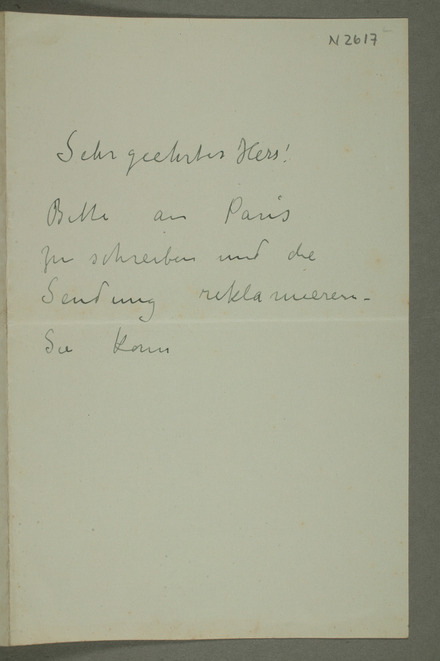 N 2617
Sehr geehrter Herr!
Bitte an Paris
zu schreiben und die
Sendung reklamieren.
Sie kann